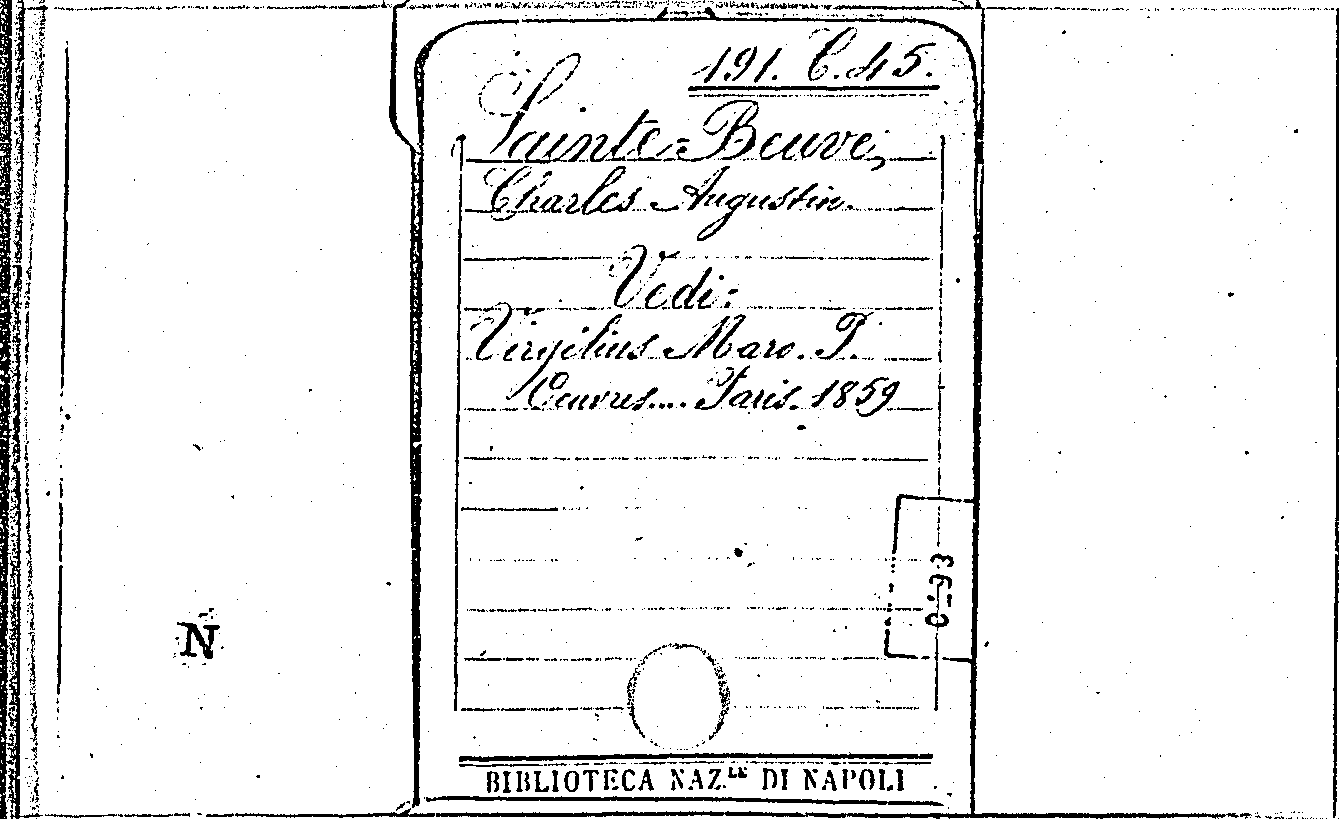 191. C. 45.
Sainte=Beuve,
Charles Augustin.
Vedi:
Virgilius Maro. P.
Oeuvres.... Paris. 1859
0-93
N
BIBLIOTECA NAZ.LE DI NAPOLI